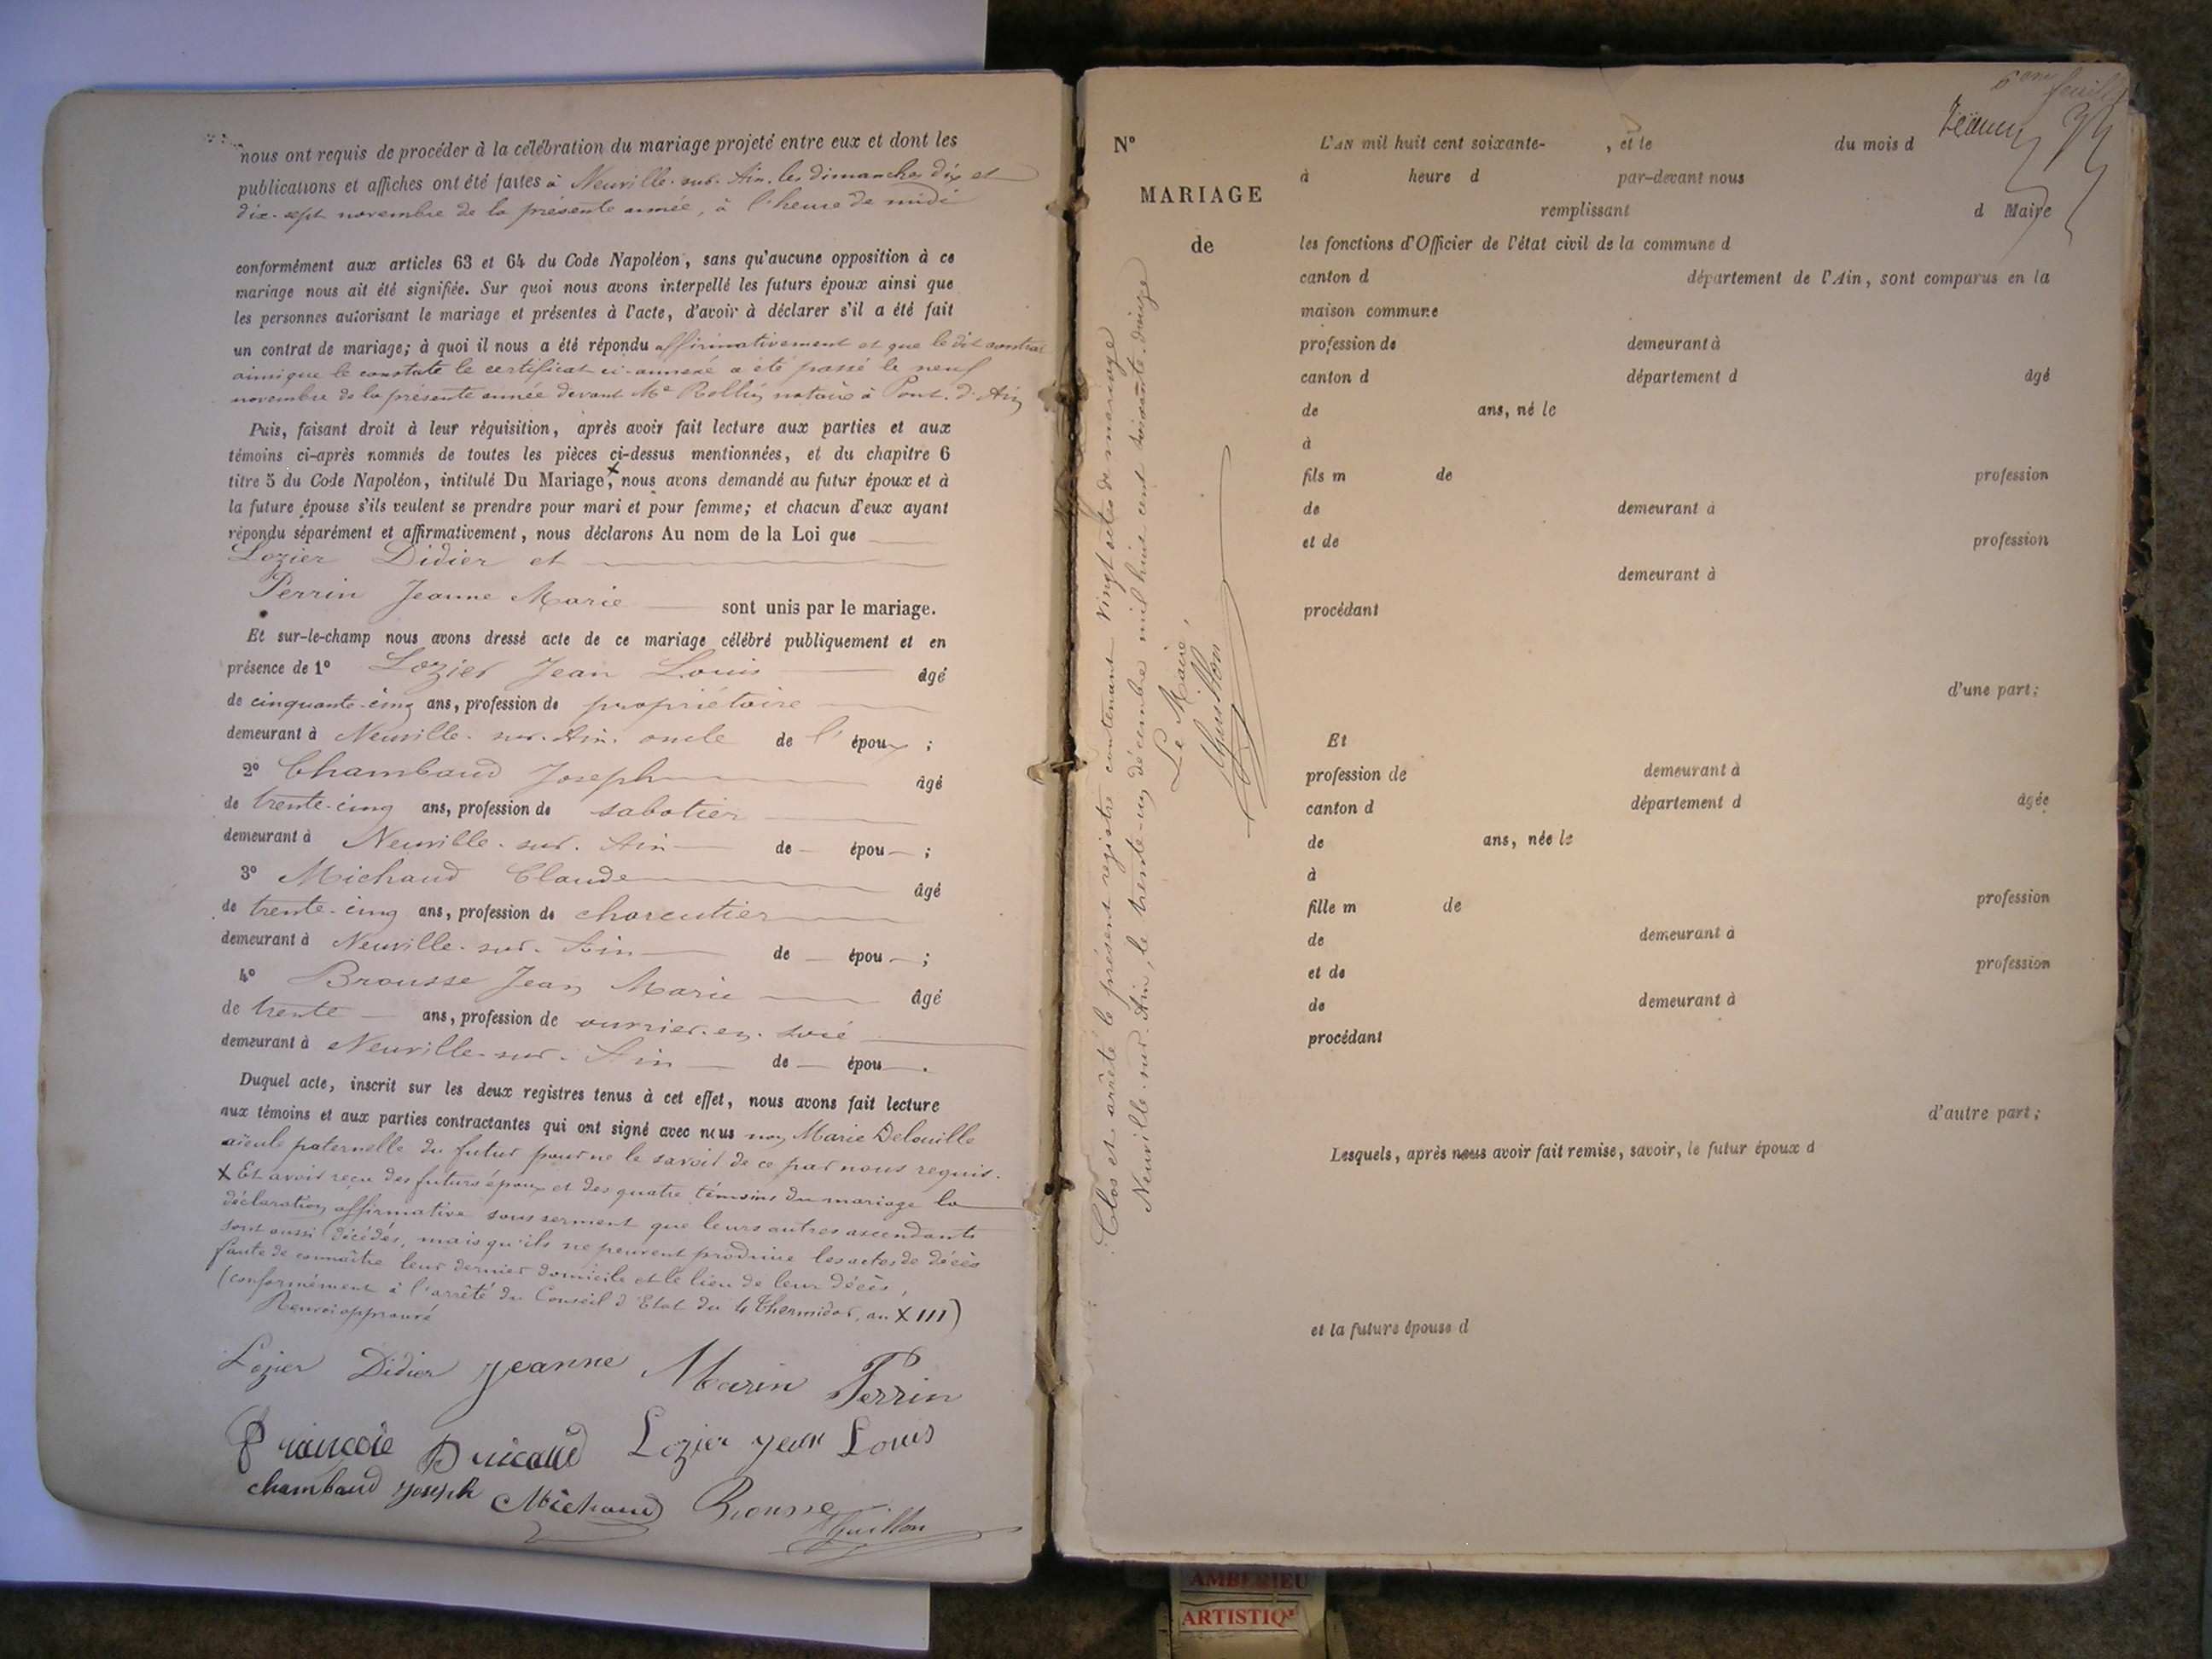 nous ont requis de procéder à la célébration du mariage projeté entre eux et dont les
publications et affiches ont été faites à Neuville-sur-Ain, les dimanches dix et
dix-sept novembre de la présente année, à l'heure de midi
conformément aux articles 63 et 64 du Code Napoléon, sans qu'aucune opposition à ce
mariage nous ait été signifiée. Sur quoi nous avons interpellé les futurs époux ainsi que
les personnes autorisant le mariage et présentes à l'acte, d'avoir à déclarer s'il a été fait
un contrat de mariage; à quoi il nous a été répondu affirmativement et que le dit contrat
ainsi que le constate le certificat ci-annexé a été passé le neuf
novembre de la présente année devant Me Rollin notaire à Pont-d'Ain
Puis, faisant droit à leur réquisition, après avoir fait lecture aux parties et aux
témoins ci-après nommés de toutes les pièces ci-dessus mentionnées, et du chapitre 6
titre 5 du Code Napoléon, intitulé Du Mariage, X nous avons demandé au futur époux et à
la future épouse s'ils veulent se prendre pour mari et pour femme; et chacun d'eux ayant
répondu séparément et affirmativement, nous déclarons Au nom de la Loi que
Lozier Didier et
Perrin Jeanne Marie sont unis par le mariage.
Et sur-le-champ nous avons dressé acte de ce mariage célébré publiquement et en
présence de 1° Lozier Jean Louis âgé
de cinquante-cinq ans, profession de propriétaire
demeurant à Neuville-sur-Ain oncle de l'époux ;
2° Chambaud Joseph âgé
de trente-cinq ans, profession de sabotier
demeurant à Neuville-sur-Ain de — épou — ;
3° Michaud Claude âgé
de trente-cinq ans, profession de charcutier
demeurant à Neuville-sur-Ain de — épou — ;
4° Brousse Jean Marie âgé
de trente ans, profession de ouvrier-en-soie
demeurant à Neuville-sur-Ain de — épou — .
Duquel acte, inscrit sur les deux registres tenus à cet effet, nous avons fait lecture
aux témoins et aux parties contractantes qui ont signé avec nous non Marie Delouille
aïeule paternelle du futur pour ne le savoir de ce par nous requis.
X Et avoir reçu des futurs époux et des quatre témoins du mariage la
déclaration affirmative sous serment que leurs autres ascendants
sont aussi décédés, mais qu'ils ne peuvent produire les actes de décès
faute de connaître leur dernier domicile et le lieu de leur décès,
(conformément à l'arrêté du Conseil d'Etat du 4 Thermidor, an XIII)
Renvoi approuvé
Lozier Didier Jeanne Marin Perrin
François Bricaud Lozier Jean Louis
chambaud joseph Michaud Brousse
Guillon
6em feuillet
N° L'AN mil huit cent soixante- , et le du mois d
à heure d par-devant nous
MARIAGE
remplissant d Maire
de les fonctions d'Officier de l'état civil de la commune d
canton d département de l'Ain, sont comparus en la
maison commune
profession de demeurant à
canton d département d âgé
de ans, né le
à
fils m de profession
de demeurant à
et de profession
demeurant à
procédant
d'une part;
Et
profession de demeurant à
canton d département d âgée
de ans, née le
à
fille m de profession
de demeurant à
et de profession
de demeurant à
procédant
d'autre part;
Lesquels, après nous avoir fait remise, savoir, le futur époux d
et la future épouse d
Clos et arrêté le présent registre contenant vingt actes de mariage
Neuville-sur-Ain, le trente-un décembre mil huit cent soixante-douze
Le Maire,
Guillon
AMBERIEU
ARTISTIQ